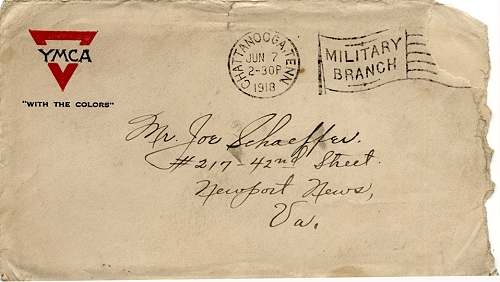 YMCA
"WITH THE COLORS"
CHATTANOOGA, TENN.
JUN 7
2-30P
1918
MILITARY
BRANCH
Mr. Joe Schaeffer.
#217-42nd Street.
Newport News,
Va.